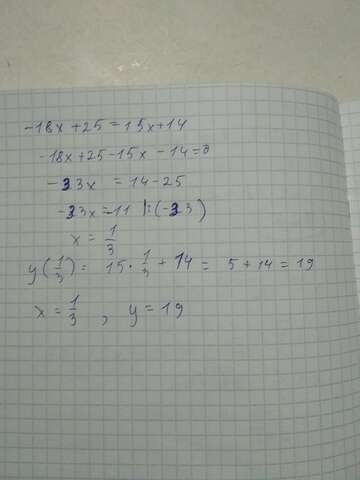 -18x+25=15x+14
-18x+25-15x-14=0
-33x = 14-25
-33x=-11 |:(-33)
x = 1/3
y(1/3) = 15·1/3+14 = 5+14=19
x = 1/3 , y = 19